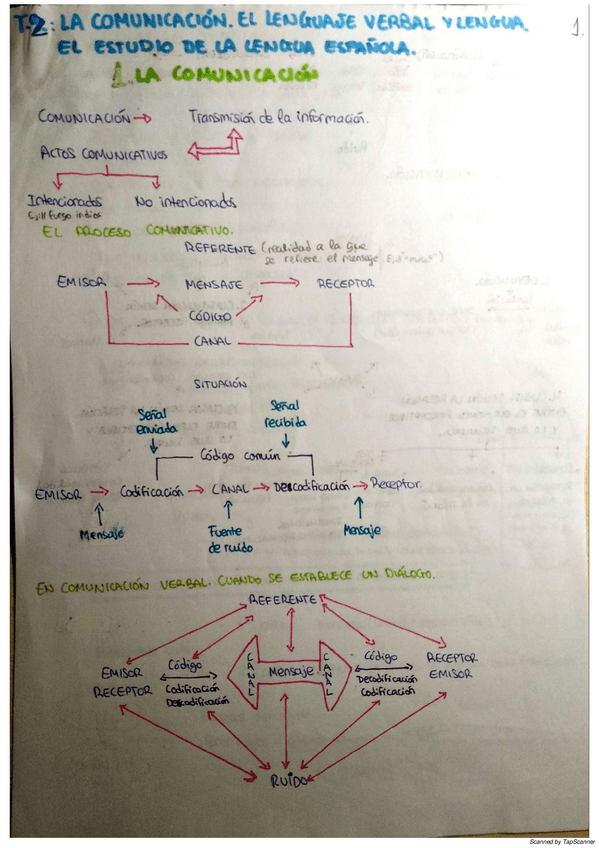 T.2: LA COMUNICACIÓN. EL LENGUAJE VERBAL Y LENGUA.
1.
EL ESTUDIO DE LA LENGUA ESPAÑOLA.
1. LA COMUNICACIÓN
COMUNICACIÓN → Transmisión de la información.
ACTOS COMUNICATIVOS
Intencionados No intencionados
fuego indios
EL PROCESO COMUNICATIVO.
REFERENTE (realidad a la que
se refiere el mensaje.
EMISOR → MENSAJE → RECEPTOR
CÓDIGO
CANAL
SITUACIÓN
Señal enviada
Señal recibida
Código común
EMISOR → Codificación → CANAL → Descodificación → Receptor.
Mensaje
Fuente de ruido
Mensaje
EN COMUNICACIÓN VERBAL. CUANDO SE ESTABLECE UN DIÁLOGO.
REFERENTE
EMISOR
RECEPTOR
Código
Codificación
Descodificación
CANAL
Mensaje
CANAL
Código
Decodificación
Codificación
RECEPTOR
EMISOR
RUIDO
Scanned by TapScanner